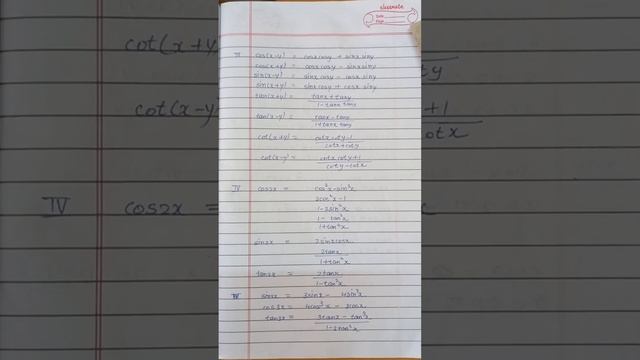 classmate
Date
Page
III cos(x-y) = cosx cosy + sinx siny
cos(x+y) = cosx cosy - sinx siny
sin(x-y) = sinx cosy - cosx siny
sin(x+y) = sinx cosy + cosx siny
tan(x+y) = tanx + tany
1 - tanx tany
tan(x-y) = tanx - tany
1 + tanx tany
cot(x+y) = cotx coty - 1
cotx + coty
cot(x-y) = cotx coty + 1
coty - cotx
IV cos2x = cos²x - sin²x
2cos²x - 1
1 - 2sin²x
1 - tan²x
1 + tan²x
sin2x = 2sinx cosx
2tanx
1 + tan²x
tan2x = 2tanx
1 - tan²x
sin3x = 3sinx - 4sin³x
cos3x = 4cos³x - 3cosx
tan3x = 3tanx - tan³x
1 - 3tan²x
cot(x+y)
cot(x-y)
IV cos2x =
ty
+1
cotx